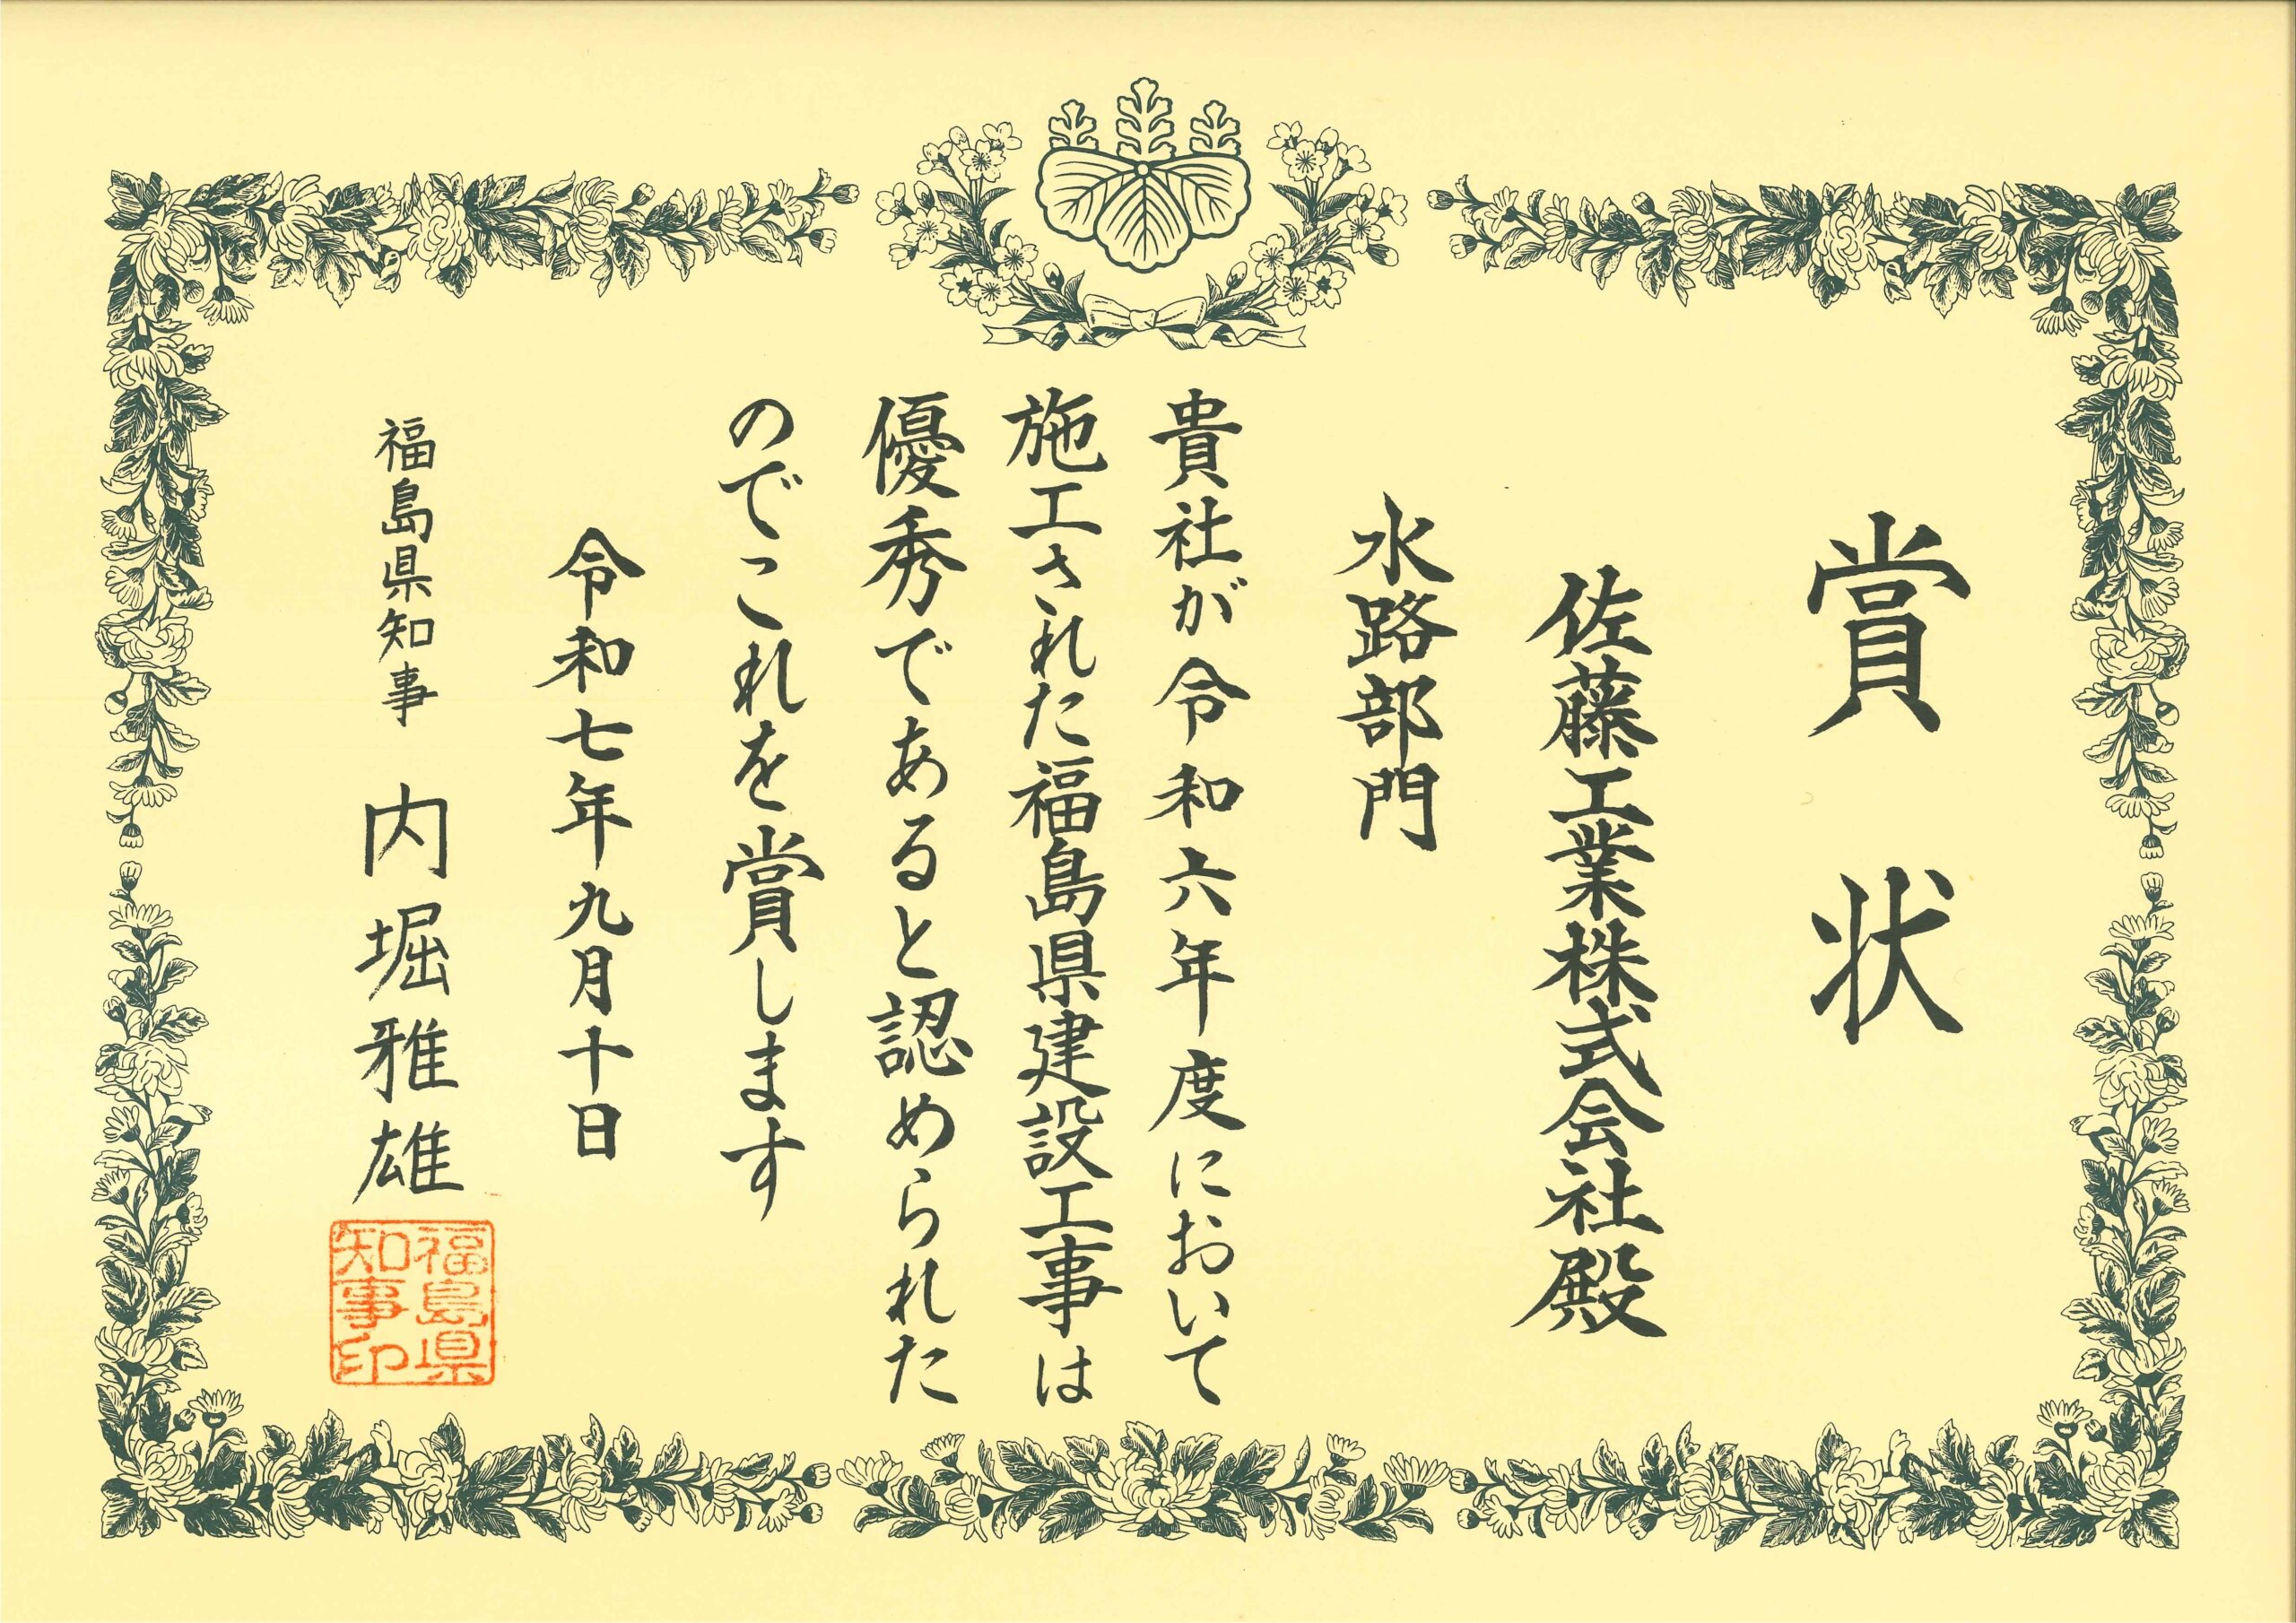 賞状
佐藤工業株式会社殿
水路部門
貴社が令和六年度において
施工された福島県建設工事は
優秀であると認められた
のでこれを賞します
令和七年九月十日
福島県知事 内堀雅雄
福島県
知事印